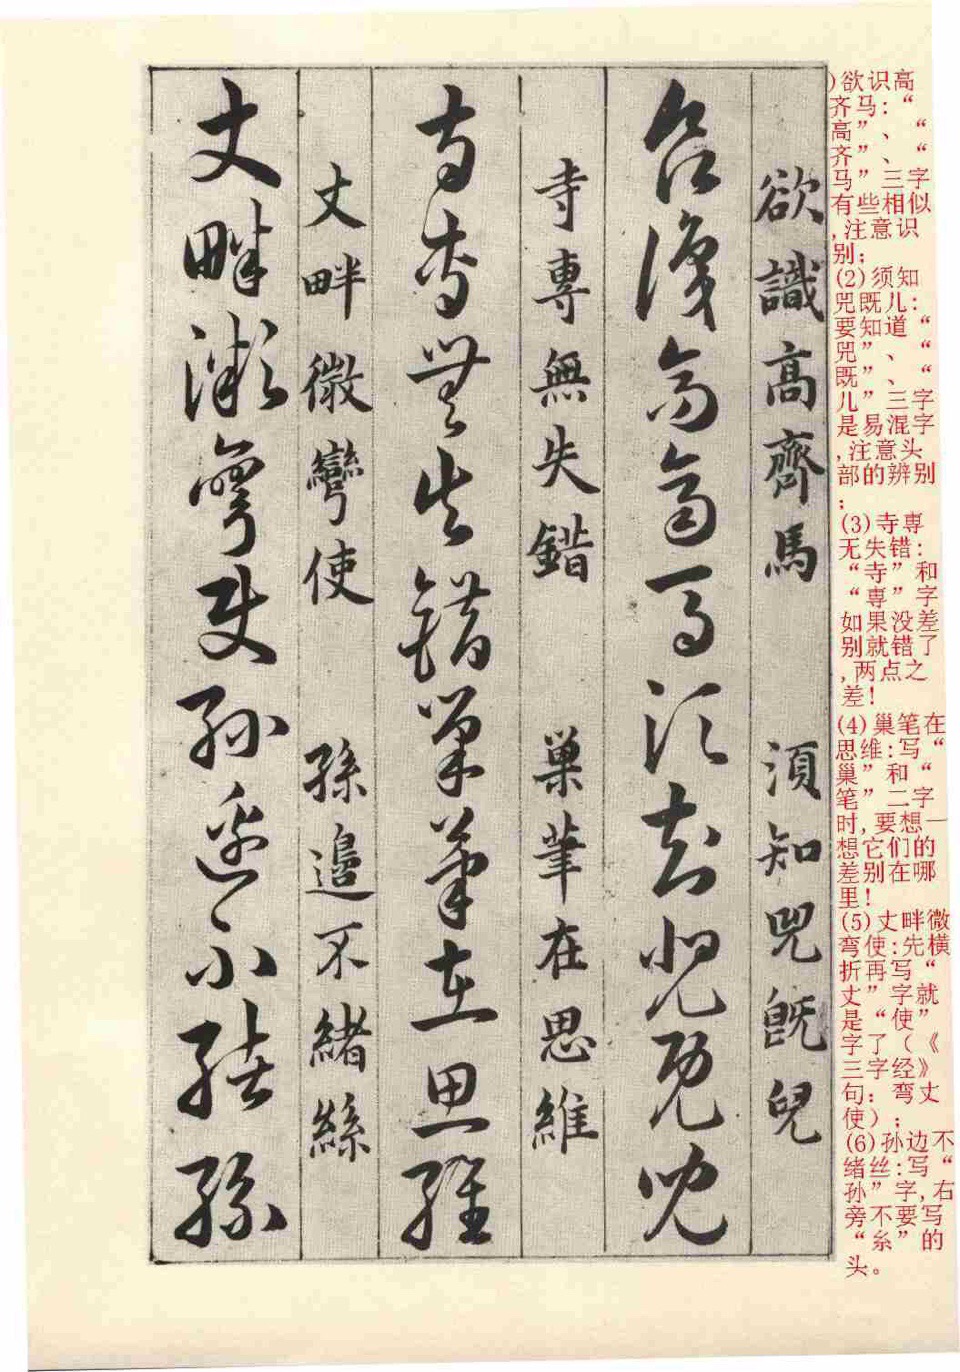 欲識高齊馬 須知兕旣兒
欲識高齊馬須知兕旣兒
寺專無失錯 巢筆在思維
寺專無失錯巢筆在思維
丈畔微彎使 孫邉不緒絲
丈畔微彎使孫邉不緒絲
)欲识高
齐马:“
高”、“
齐”、“
马”三字
有些相似
,注意识
别;
(2)须知
兕既儿:
要知道“
兕”、“
既”、“
儿”三字
是易混字
,注意头
部的辨别
;
(3)寺専
无失错:
“寺”和
“専”字
如果没差
别就错了
,两点之
差!
(4)巢笔在
思维:写“
巢”和“
笔”二字
时,要想一
想它们的
差别在哪
里!
(5)丈畔微
弯使:先横
折再写“
丈”字就
是“使”
字了（《
三字经》
句：弯丈
使）;
(6)孙边不
绪丝:写“
孙”字,右
旁不要写
“糸”的
头。